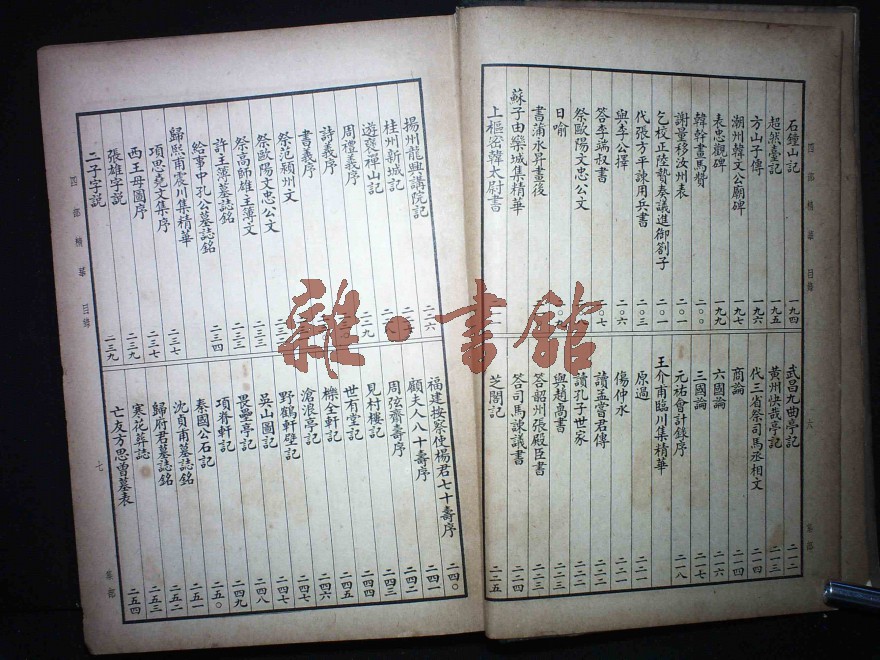 四部精華 目錄
六
集部
石鐘山記 一九四
超然臺記 一九五
方山子傳 一九六
潮州韓文公廟碑 一九七
表忠觀碑 一九九
韓幹畫馬贊 二〇〇
謝量移汝州表 二〇一
乞校正陸贄奏議進御劄子 二〇一
代張方平諫用兵書 二〇三
與李公擇 二〇六
答李端叔書
祭歐陽文忠公文
日喻
書蒲永昇畫後
蘇子由欒城集精華
上樞密韓太尉書
武昌九曲亭記 二一二
黃州快哉亭記 二一三
代三省祭司馬丞相文 二一四
商論 二一四
六國論 二一六
三國論 二一七
元祐會計錄序 二一八
王介甫臨川集精華
原過 二二一
傷仲永
讀孟嘗君傳 二二二
讀孔子世家 二二二
與趙卨書 二二三
答韶州張殿臣書 二二三
答司馬諫議書 二二四
芝閣記 二二五
揚州龍興講院記 二二六
桂州新城記
遊褒禪山記
周禮義序 二二九
詩義序
書義序
祭范潁州文
祭歐陽文忠公文 二三三
祭高師雄主簿文 二三三
許主簿墓誌銘
給事中孔公墓誌銘 二三四
歸熙甫震川集精華
項思堯文集序 二三七
西王母圖序
張雄字說 二三九
二子字説 二三九
福建按察使楊君七十壽序 二四〇
顧夫人八十壽序 二四一
周弦齋壽序 二四二
見村樓記 二四四
世有堂記 二四五
櫟全軒記 二四六
滄浪亭記 二四七
野鶴軒壁記 二四七
吳山圖記 二四八
畏壘亭記 二四九
項脊軒記 二五〇
秦國公石記 二五一
沈貞甫墓誌銘 二五二
歸府君墓誌銘 二五三
寒花葬誌
亡友方思曾墓表 二五四
四部精華 目錄
七
集部
雜·書館